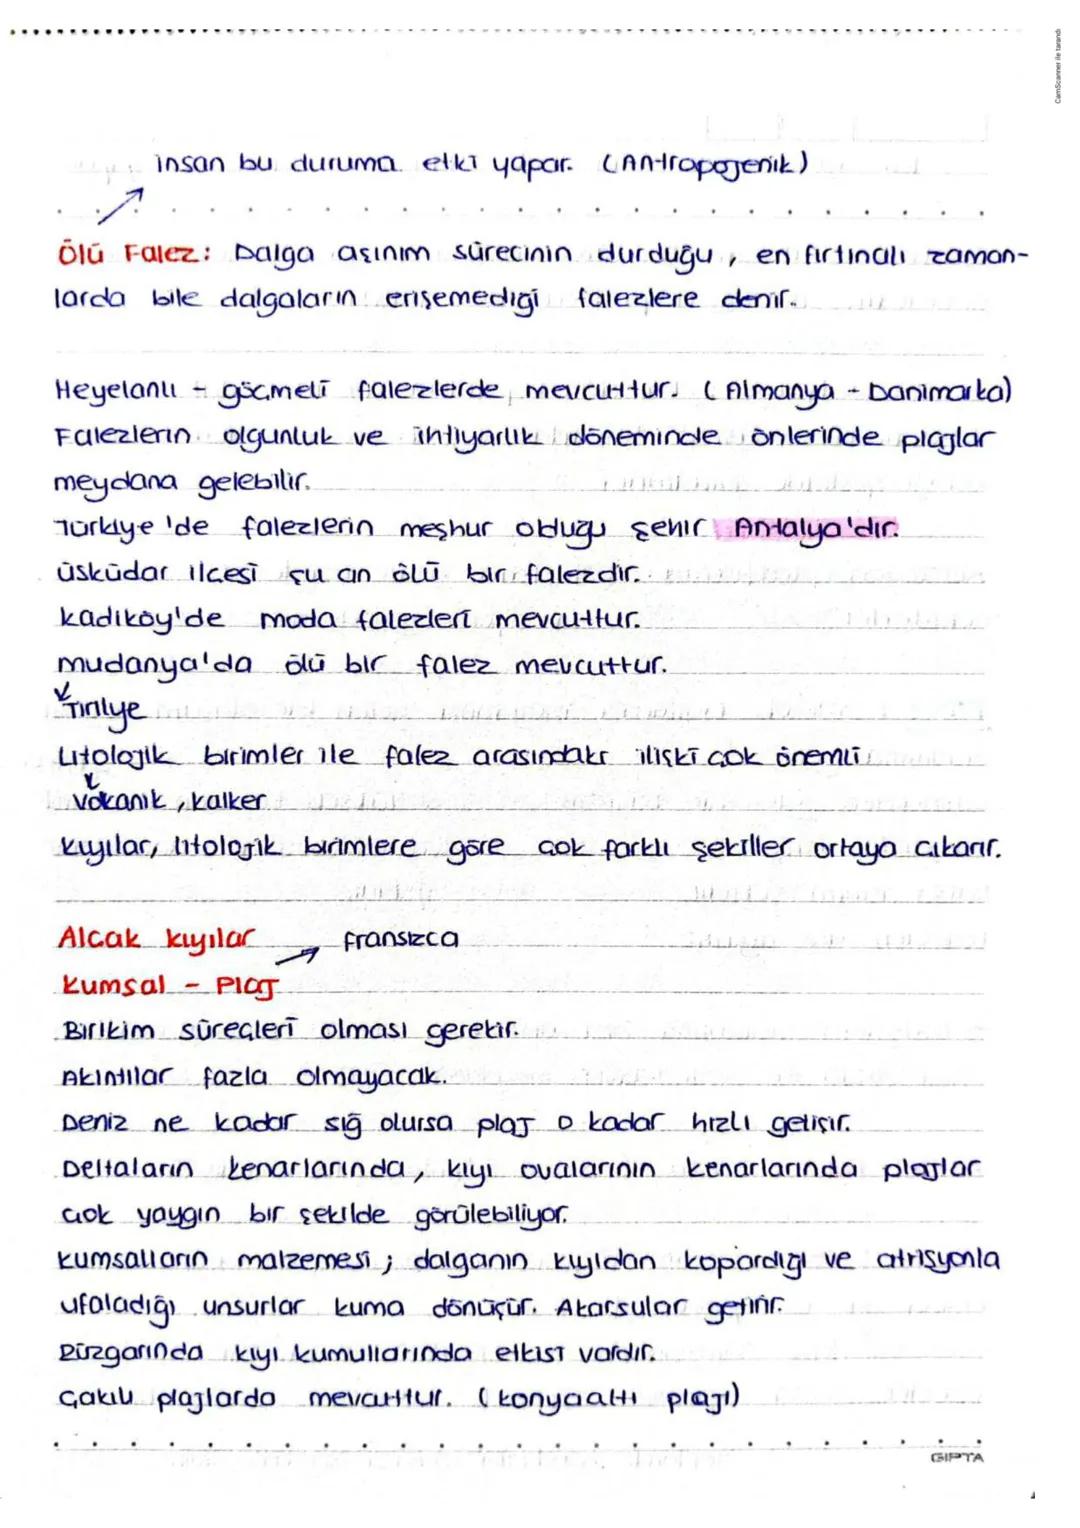 CamScanner ile tarandı
insan bu duruma etki yapar. (Antropojenik)
Ölü Falez: Dalga aşınım sürecinin durduğu, en fırtınalı zaman-
larda bile dalgaların erişemediği falezlere denir.
Heyelanlı - göçmeli falezlerde mevcuttur. (Almanya - Danimarka)
Falezlerin olgunluk ve ihtiyarlık döneminde önlerinde plajlar
meydana gelebilir.
Türkiye'de falezlerin meşhur olduğu şehir Antalya'dır.
üsküdar ilçesi şu an ölü bir falezdir.
kadıköy'de moda falezleri mevcuttur.
mudanya'da ölü bir falez mevcuttur.
Tirilye
Litolojik birimler ile falez arasındaki ilişki çok önemli
Volkanik, kalker
kıyılar, litolojik birimlere göre çok farklı şekiller ortaya çıkarır.
Alçak kıyılar
fransızca
kumsal - Plaj
Birikim süreçleri olması gerekir.
Akıntılar fazla olmayacak.
Deniz ne kadar sığ olursa plaj o kadar hızlı gelişir.
Deltaların kenarlarında, kıyı ovalarının kenarlarında plajlar
çok yaygın bir şekilde görülebiliyor.
kumsalların malzemesi; dalganın kıyıdan kopardığı ve atrisyonla
ufaladığı unsurlar kuma dönüşür. Akarsular getirir.
Rüzgarında kıyı kumullarında etkisi vardır.
Çakıllı plajlarda mevcuttur. (konyaaltı plajı)
GIPTA